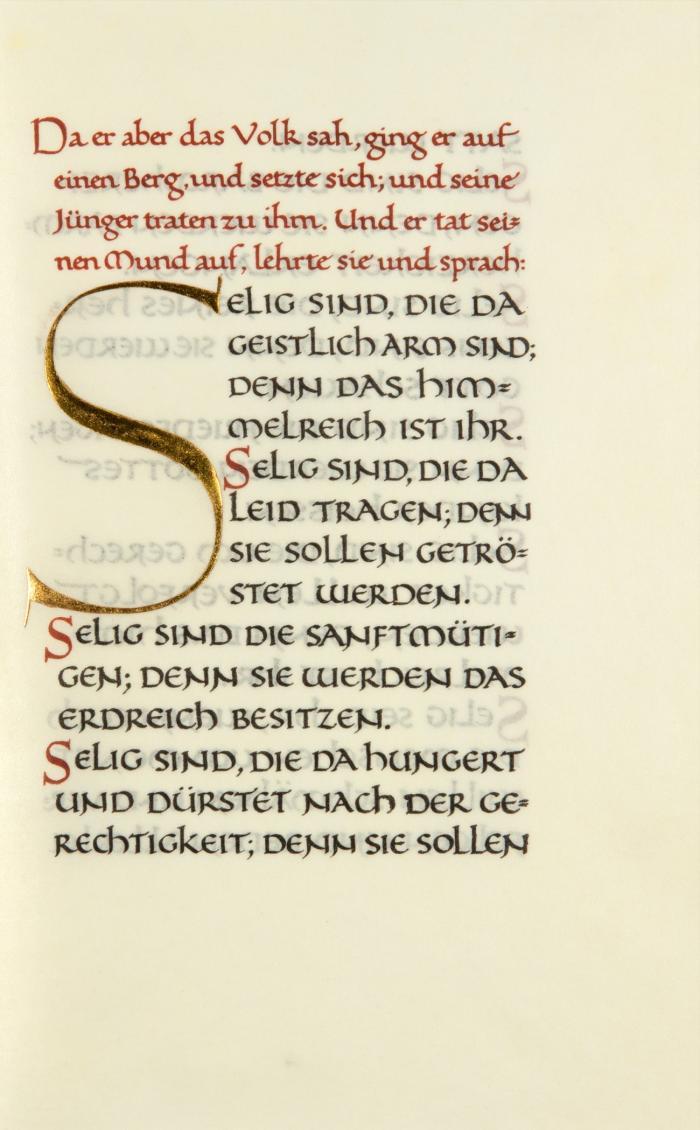 Da er aber das Volk sah, ging er auf
einen Berg, und setzte sich; und seine
Jünger traten zu ihm. Und er tat sei=
nen Mund auf, lehrte sie und sprach:
SELIG SIND, DIE DA
GEISTLICH ARM SIND;
DENN DAS HIM=
MELREICH IST IHR.
SELIG SIND, DIE DA
LEID TRAGEN; DENN
SIE SOLLEN GETRÖ=
STET WERDEN.
SELIG SIND DIE SANFTMÜTI=
GEN; DENN SIE WERDEN DAS
ERDREICH BESITZEN.
SELIG SIND, DIE DA HUNGERT
UND DÜRSTET NACH DER GE=
RECHTIGKEIT; DENN SIE SOLLEN